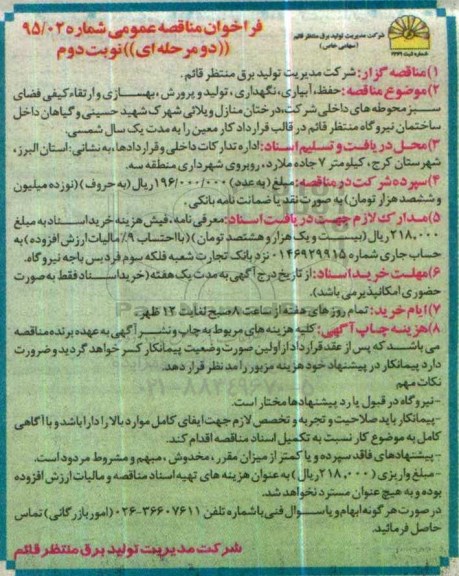 شرکت مدیریت تولید برق منتظر قائم
(سهامی خاص)
فراخوان مناقصه عمومی شماره ۹۵/۰۲
((دو مرحله ای)) نوبت دوم
۱) مناقصه گزار: شرکت مدیریت تولید برق منتظر قائم.
۲) موضوع مناقصه: حفظ، آبیاری، نگهداری، تولید و پرورش، بهسازی و ارتقاء کیفی فضای
سبز محوطه های داخلی شرکت، درختان منازل ویلائی شهرک شهید حسینی و گیاهان داخل
ساختمان نیروگاه منتظر قائم در قالب قرارداد کار معین را به مدت یک سال شمسی.
۳) محل دریافت و تسلیم اسناد: اداره تدارکات داخلی و قراردادها، به نشانی: استان البرز،
شهرستان کرج، کیلومتر ۷ جاده ملارد، روبروی شهرداری منطقه سه.
۴) سپرده شرکت در مناقصه: مبلغ (به عدد) ۱۹۶/۰۰۰/۰۰۰ ریال (به حروف) (نوزده میلیون
و ششصد هزار تومان) به صورت نقد یا ضمانت نامه بانکی.
۵) مدارک لازم جهت دریافت اسناد: معرفی نامه، فیش هزینه خرید اسناد به مبلغ
۲۱۸,۰۰۰ ریال (بیست و یک هزار و هشتصد تومان) (با احتساب ۹٪ مالیات ارزش افزوده) به
حساب جاری شماره ۰۱۴۶۹۲۹۹۱۵ نزد بانک تجارت شعبه فلکه سوم فردیس باجه نیروگاه.
۶) مهلت خرید اسناد: از تاریخ درج آگهی به مدت یک هفته (خرید اسناد فقط به صورت
حضوری امکانپذیر می باشد).
۷) ایام خرید: تمام روزهای هفته از ساعت ۸ صبح لغایت ۱۲ ظهر.
۸) هزینه چاپ آگهی: کلیه هزینه های مربوط به چاپ و نشر آگهی به عهده برنده مناقصه
می باشد که پس از عقد قرارداد از اولین صورت وضعیت پیمانکار کسر خواهد گردید و ضرورت
دارد پیمانکار در پیشنهاد خود هزینه مزبور را مد نظر قرار دهد.
نکات مهم
- نیروگاه در قبول یا رد پیشنهادها مختار است.
- پیمانکار باید صلاحیت و تجربه و تخصص لازم جهت ایفای کامل موارد بالا را دارا باشد و با آگاهی
کامل به موضوع کار نسبت به تکمیل اسناد مناقصه اقدام کند.
- پیشنهادهای فاقد سپرده و یا کمتر از میزان مقرر، مخدوش، مبهم و مشروط مردود است.
- مبلغ واریزی (۲۱۸,۰۰۰ ریال) به عنوان هزینه های تهیه اسناد مناقصه و مالیات ارزش افزوده
بوده و به هیچ عنوان مسترد نخواهد شد.
در صورت هر گونه ابهام و یا سوال فنی با شماره تلفن ۳۶۶۰۷۶۱۱-۰۲۶ (امور بازرگانی) تماس
حاصل فرمائید.
شرکت مدیریت تولید برق منتظر قائم